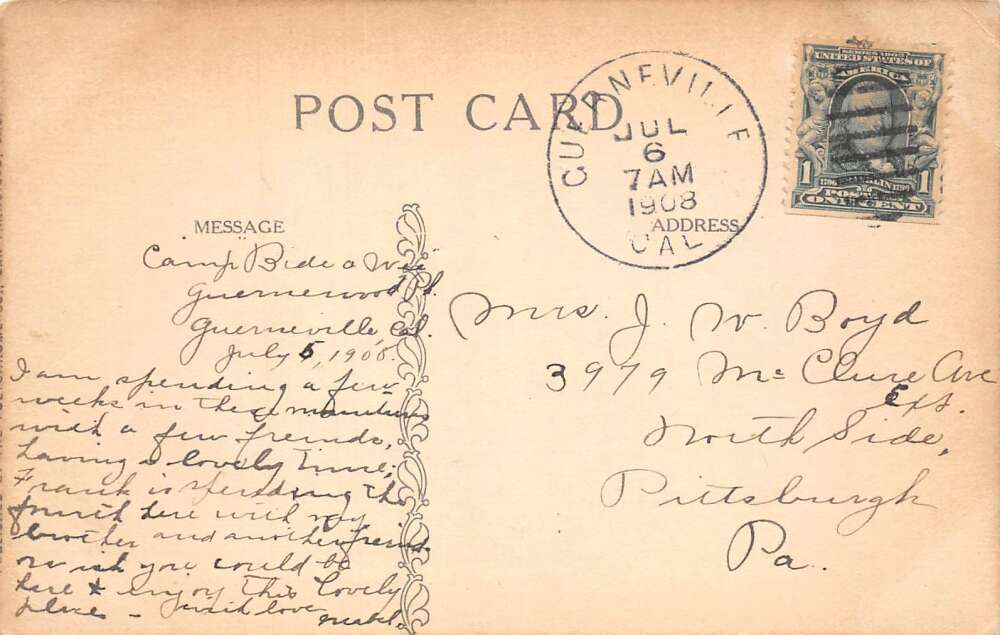 POST CARD
GUERNEVILLE
JUL
6
7AM
1908
CAL
SERIES 1902
UNITED STATES OF
AMERICA
1 1
FRANKLIN
POSTAGE
ONE CENT
MESSAGE
ADDRESS
Camp Bide a Wee
Guernewood Pk.
Guerneville, Cal.
July 5, 1908.
I am spending a few
weeks in these mountains
with a few freinds,
having a lovely time;
Frank is spending the
fourth here with my
brother and another freind.
wish you could be
here & enjoy this lovely
place – with love
Mabel.
Mrs. J. W. Boyd
3979 McClure Ave
Ext.
North Side,
Pittsburgh
Pa.